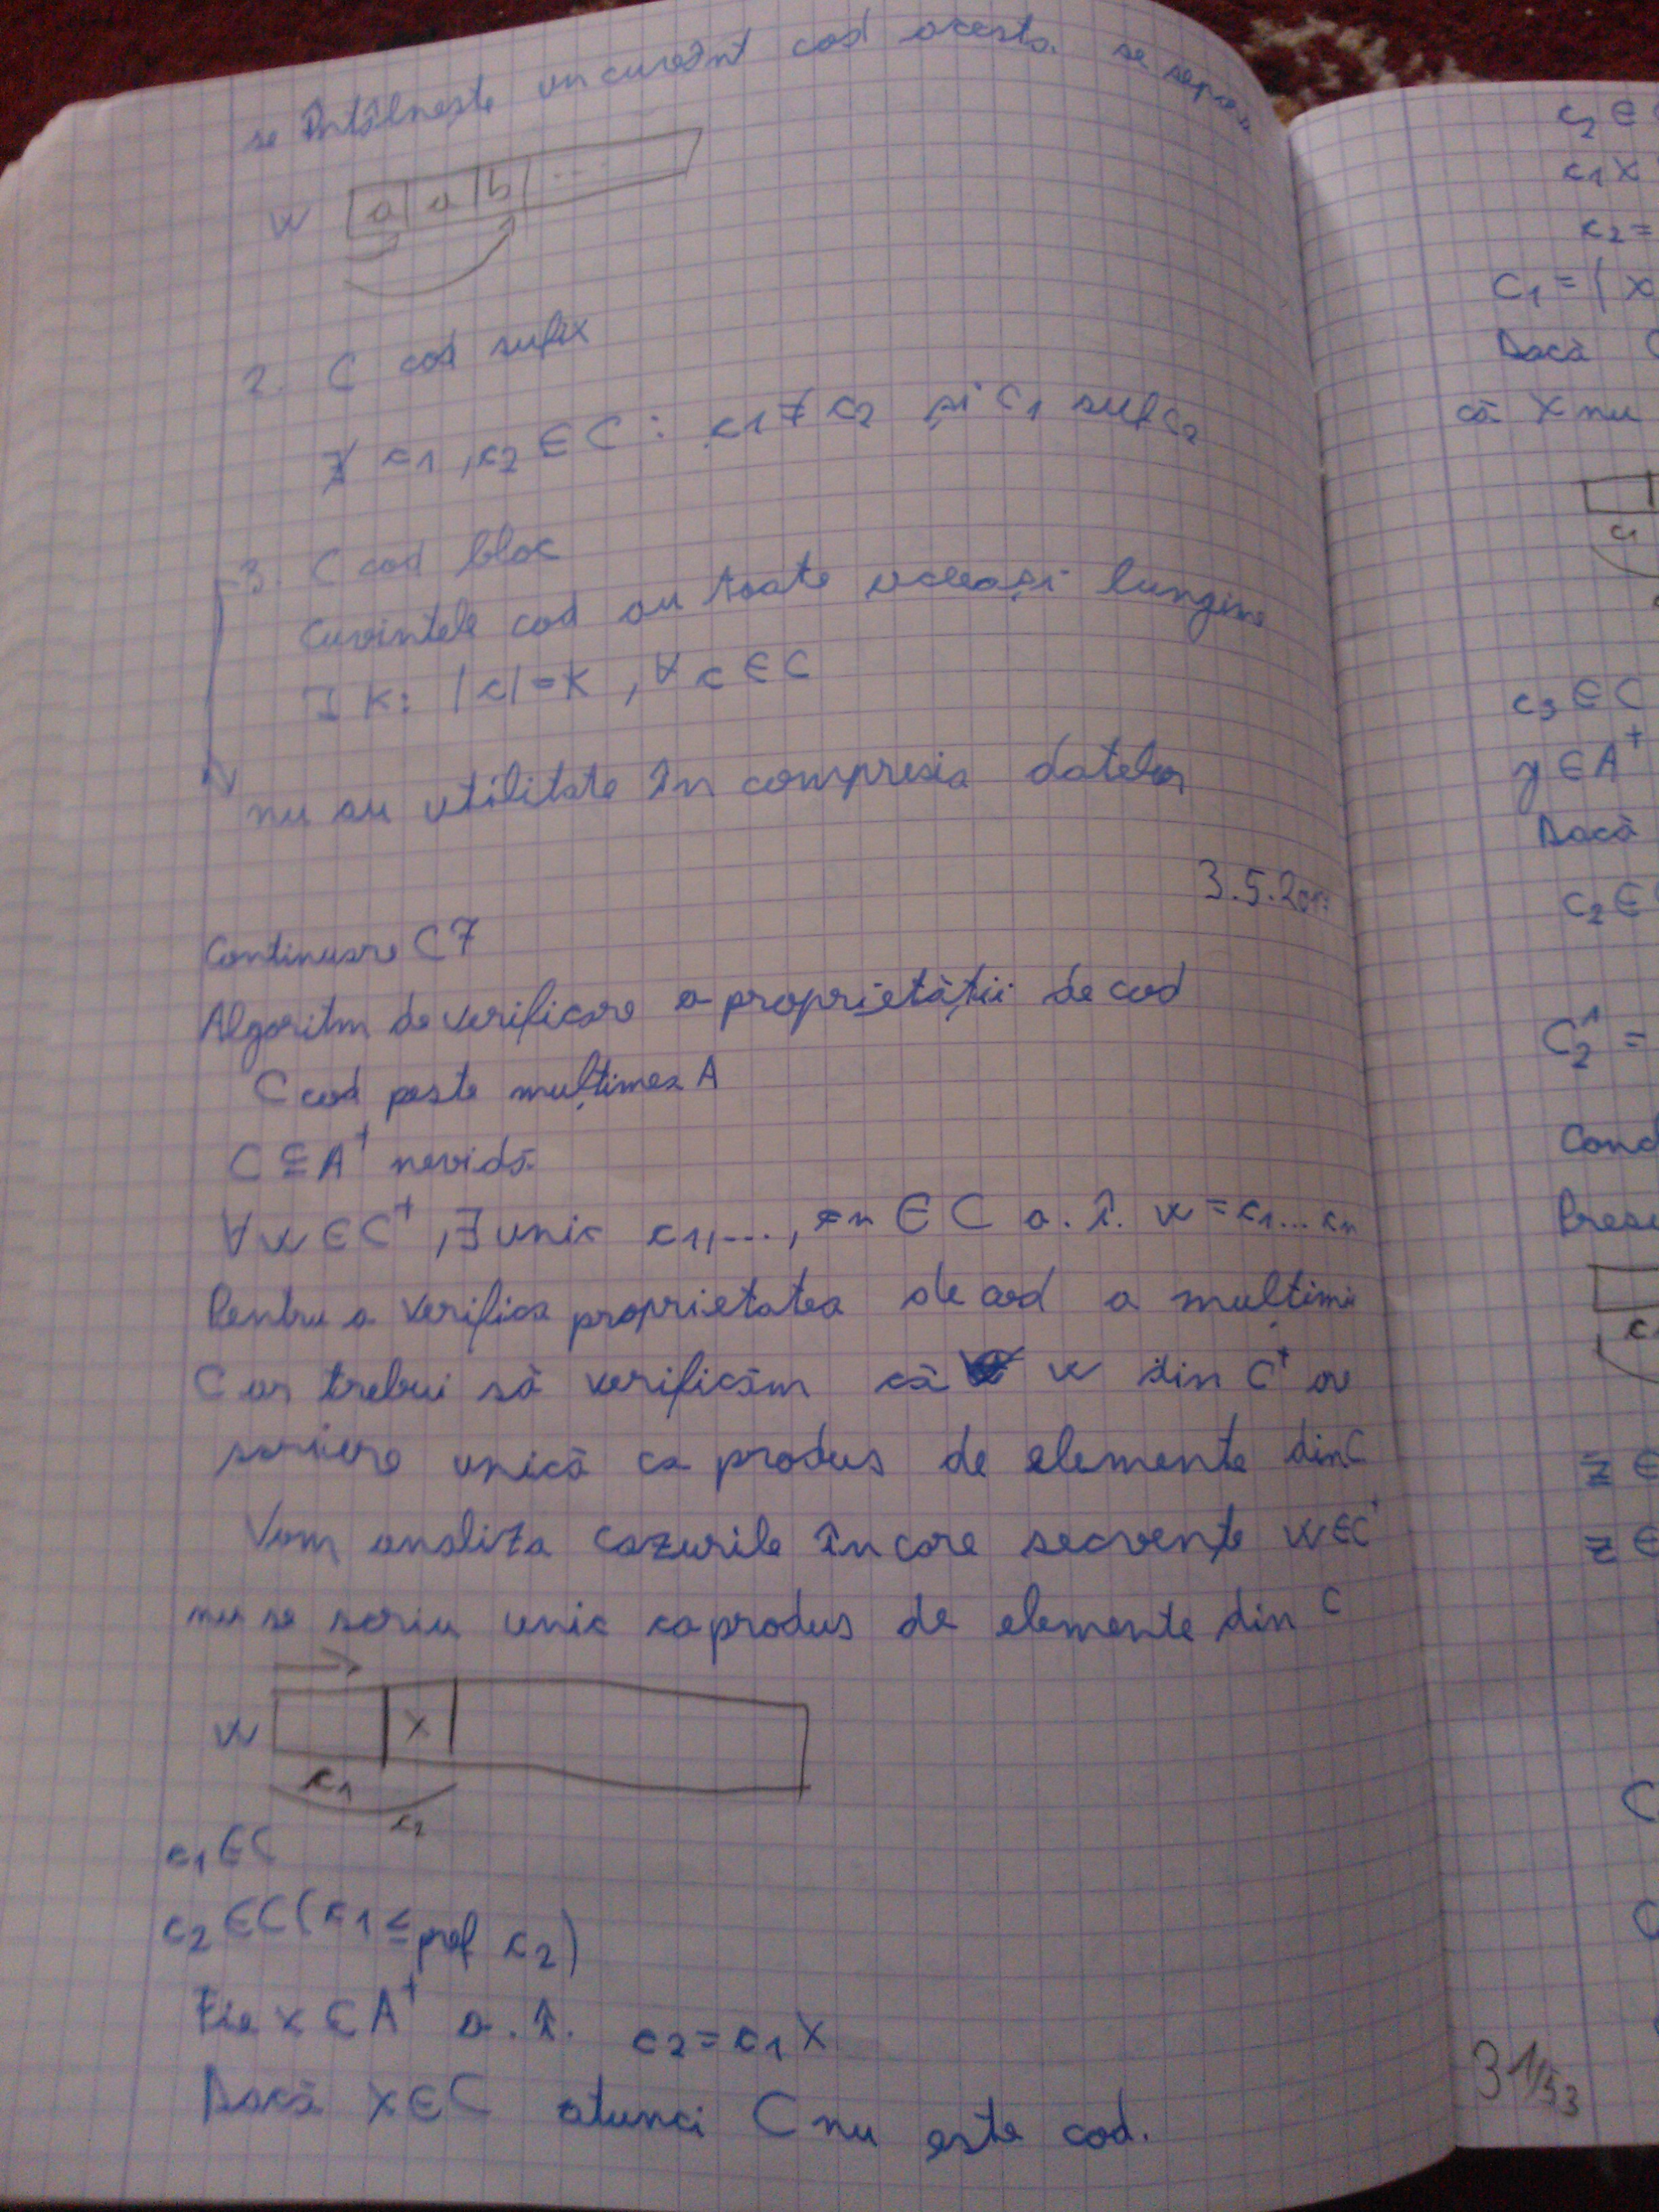 se întâlnește un cuvânt cod acesta se separă
w a a b ...
2. C cod sufix
∄ c1, c2 ∈ C : c1 ≠ c2 și c1 suf c2
3. C cod bloc
Cuvintele cod au toate aceeași lungime
∃ k: |c| = k, ∀ c ∈ C
nu au utilitate în compresia datelor
3.5.201
Continuare C7
Algoritm de verificare a proprietății de cod
C cod peste mulțimea A
C ⊆ A⁺ nevidă
∀ w ∈ C⁺, ∃ unic c1, ..., cn ∈ C a. î. w = c1 ... cn
Pentru a verifica proprietatea de cod a mulțimii
C ar trebui să verificăm că w din C⁺ are
scriere unică ca produs de elemente din C
Vom analiza cazurile în care secvențe w ∈ C⁺
nu se scriu unic ca produs de elemente din C
w x
c1
c2
c1 ∈ C
c2 ∈ C (c1 ≤pref c2)
Fie x ∈ A⁺ a. î. c2 = c1 x
Dacă x ∈ C atunci C nu este cod.
c2 ∈
c1 x
c2 =
C1 = { x
Dacă
că x nu
c1
c3 ∈ C
y ∈ A⁺
Dacă
c2 ∈
C2¹ =
Cond
Presu
z ∈
z ∈
C
31/53